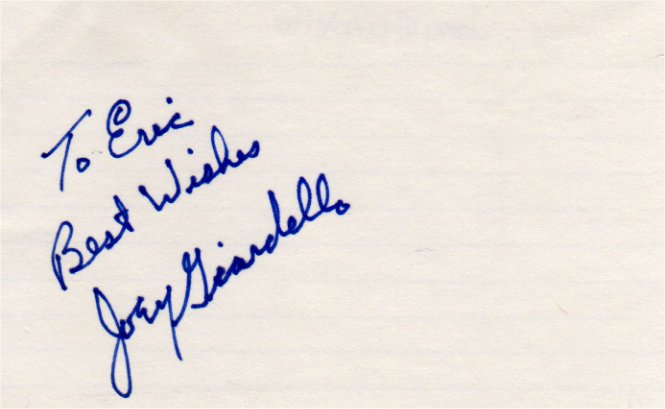 To Eric
Best Wishes
Joey Giardello